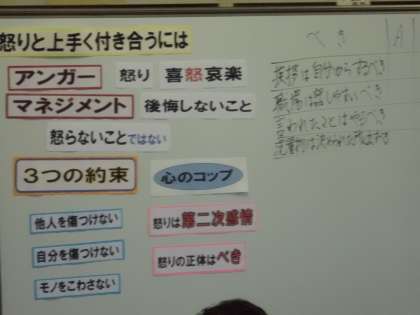 怒りと上手く付き合うには
アンガー
怒り
喜怒哀楽
マネジメント
後悔しないこと
怒らないことではない
3つの約束
心のコップ
他人を傷つけない
怒りは第二次感情
自分を傷つけない
怒りの正体はべき
モノをこわさない
べき
A
挨拶は自分からするべき
言われたことはやるべき